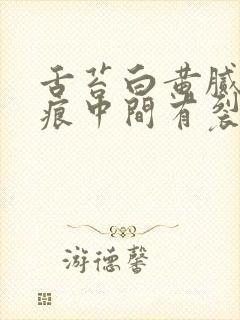 舌苔白黄膩
痕中間有裂
游德馨